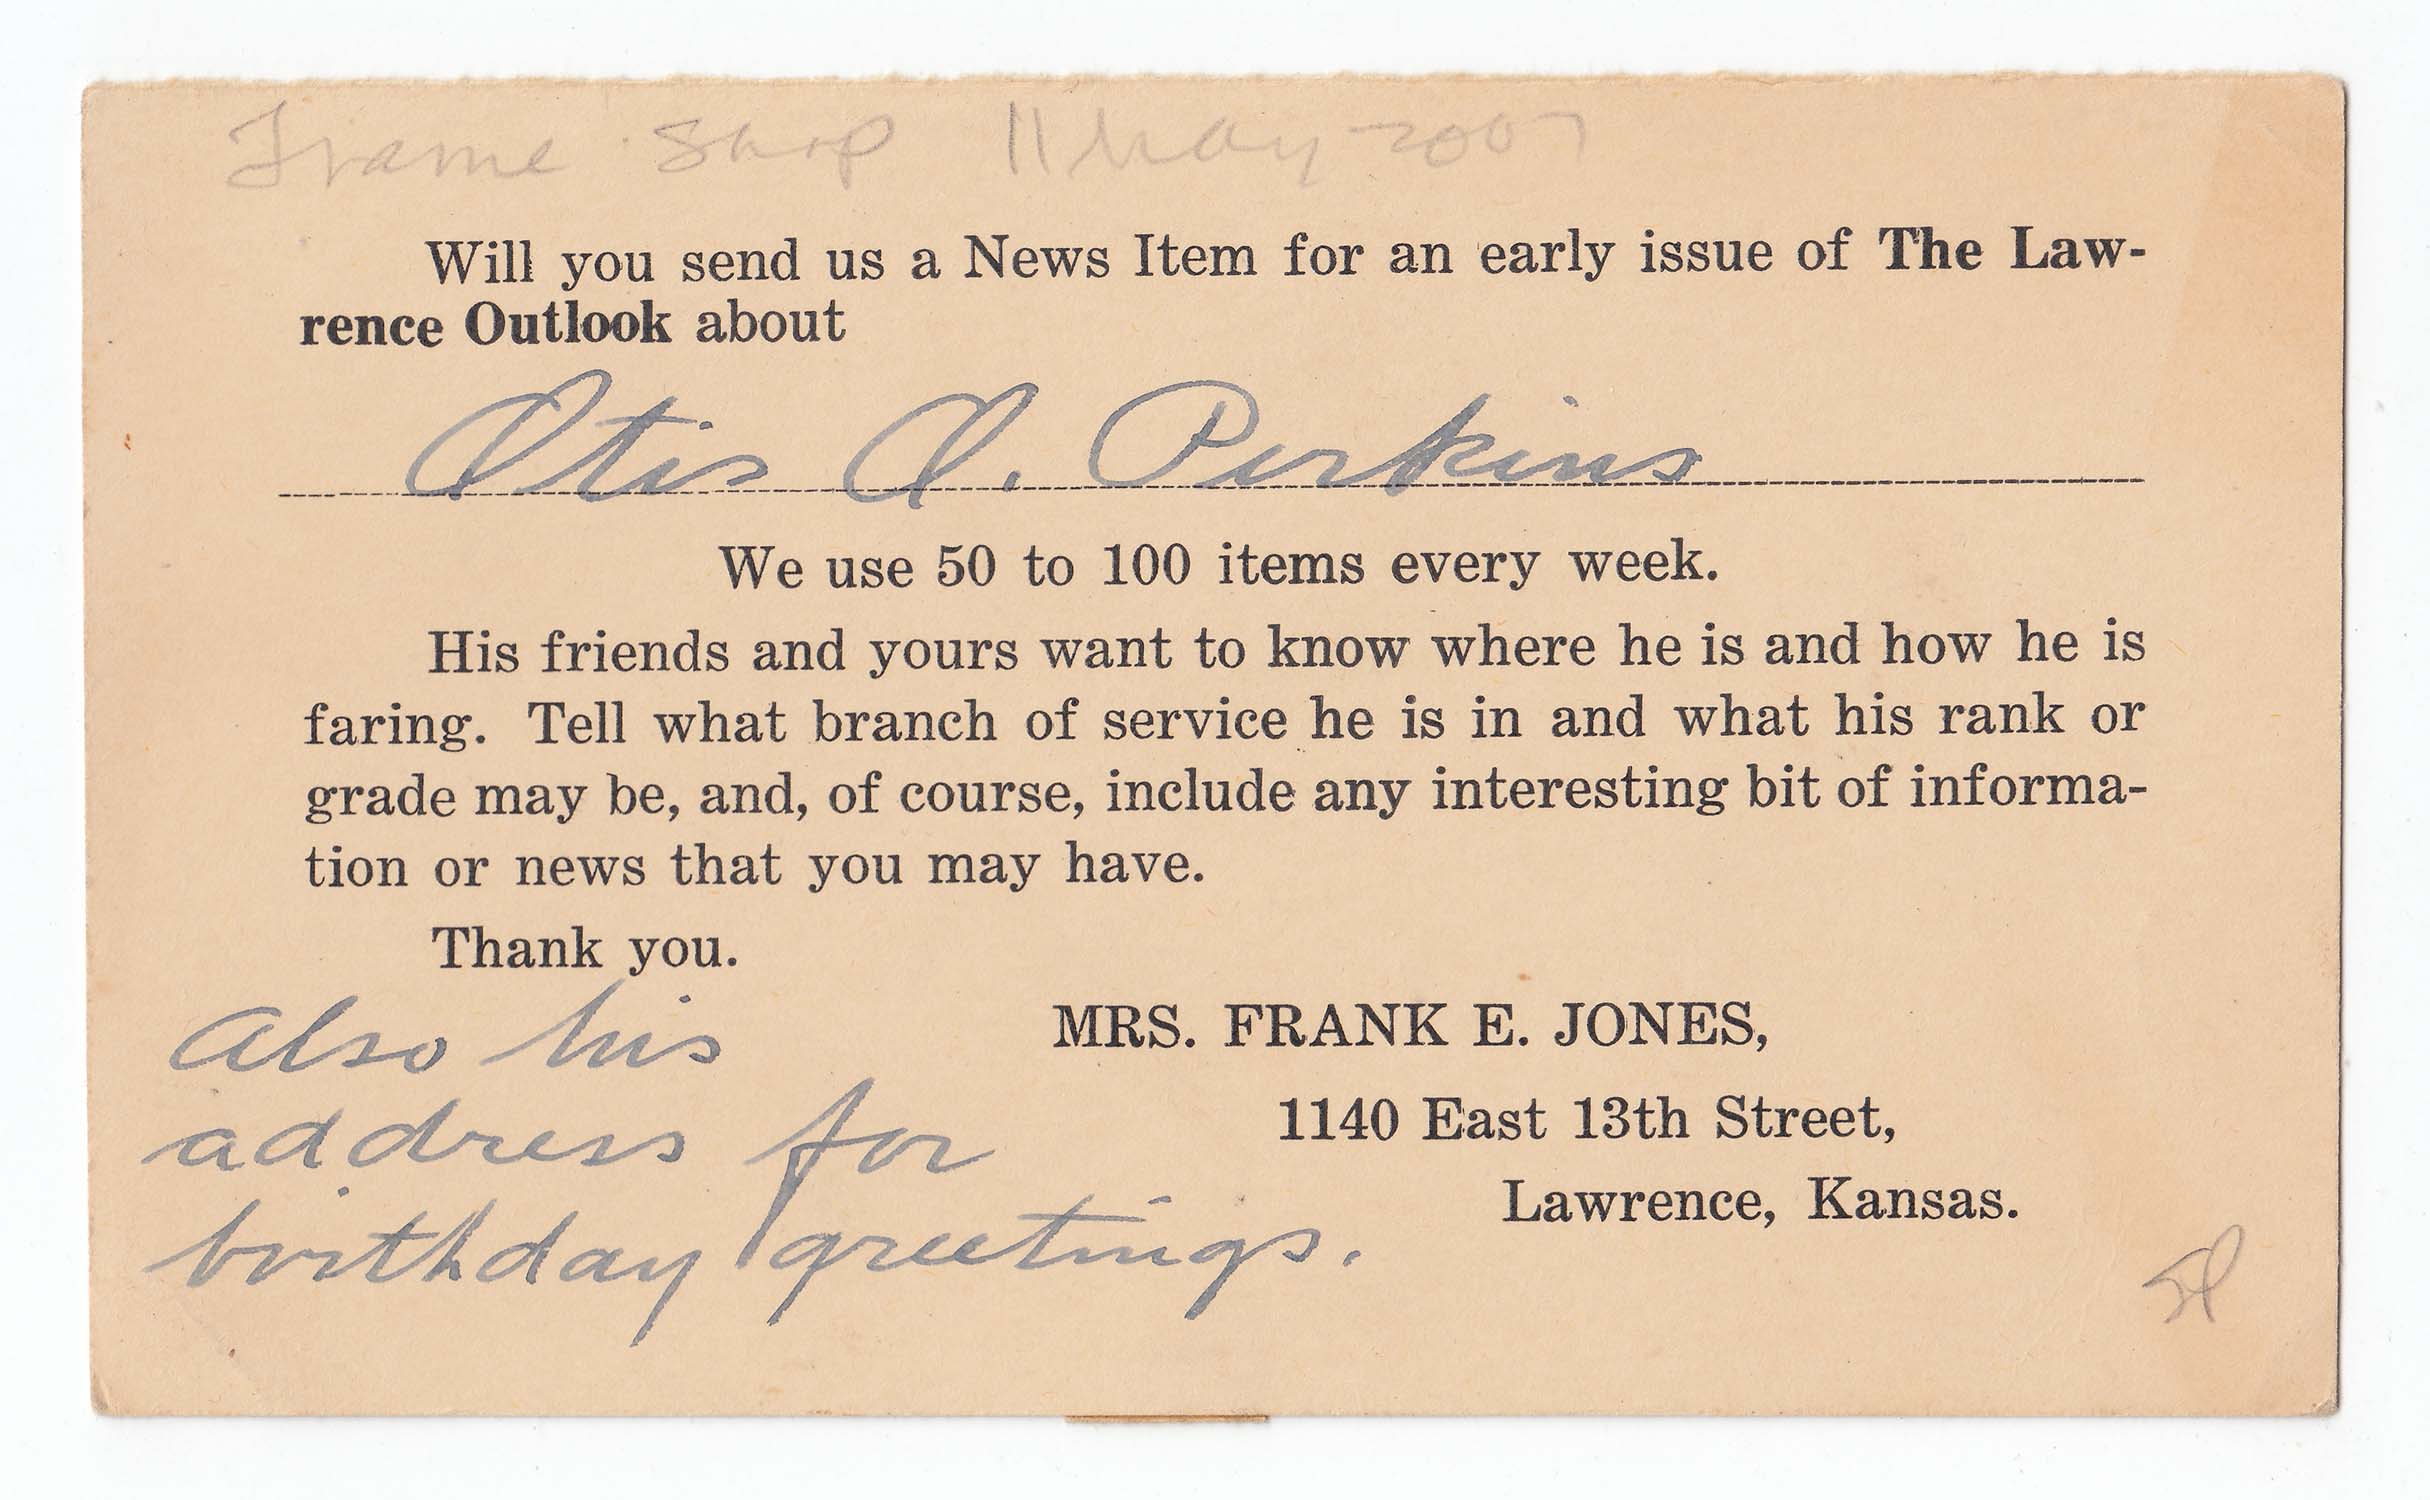 Frame Shop 11 May 2007
Will you send us a News Item for an early issue of The Law-
rence Outlook about
Otis O. Perkins
We use 50 to 100 items every week.
His friends and yours want to know where he is and how he is
faring. Tell what branch of service he is in and what his rank or
grade may be, and, of course, include any interesting bit of informa-
tion or news that you may have.
Thank you.
MRS. FRANK E. JONES,
1140 East 13th Street,
Lawrence, Kansas.
Also his
address for
birthday greetings.